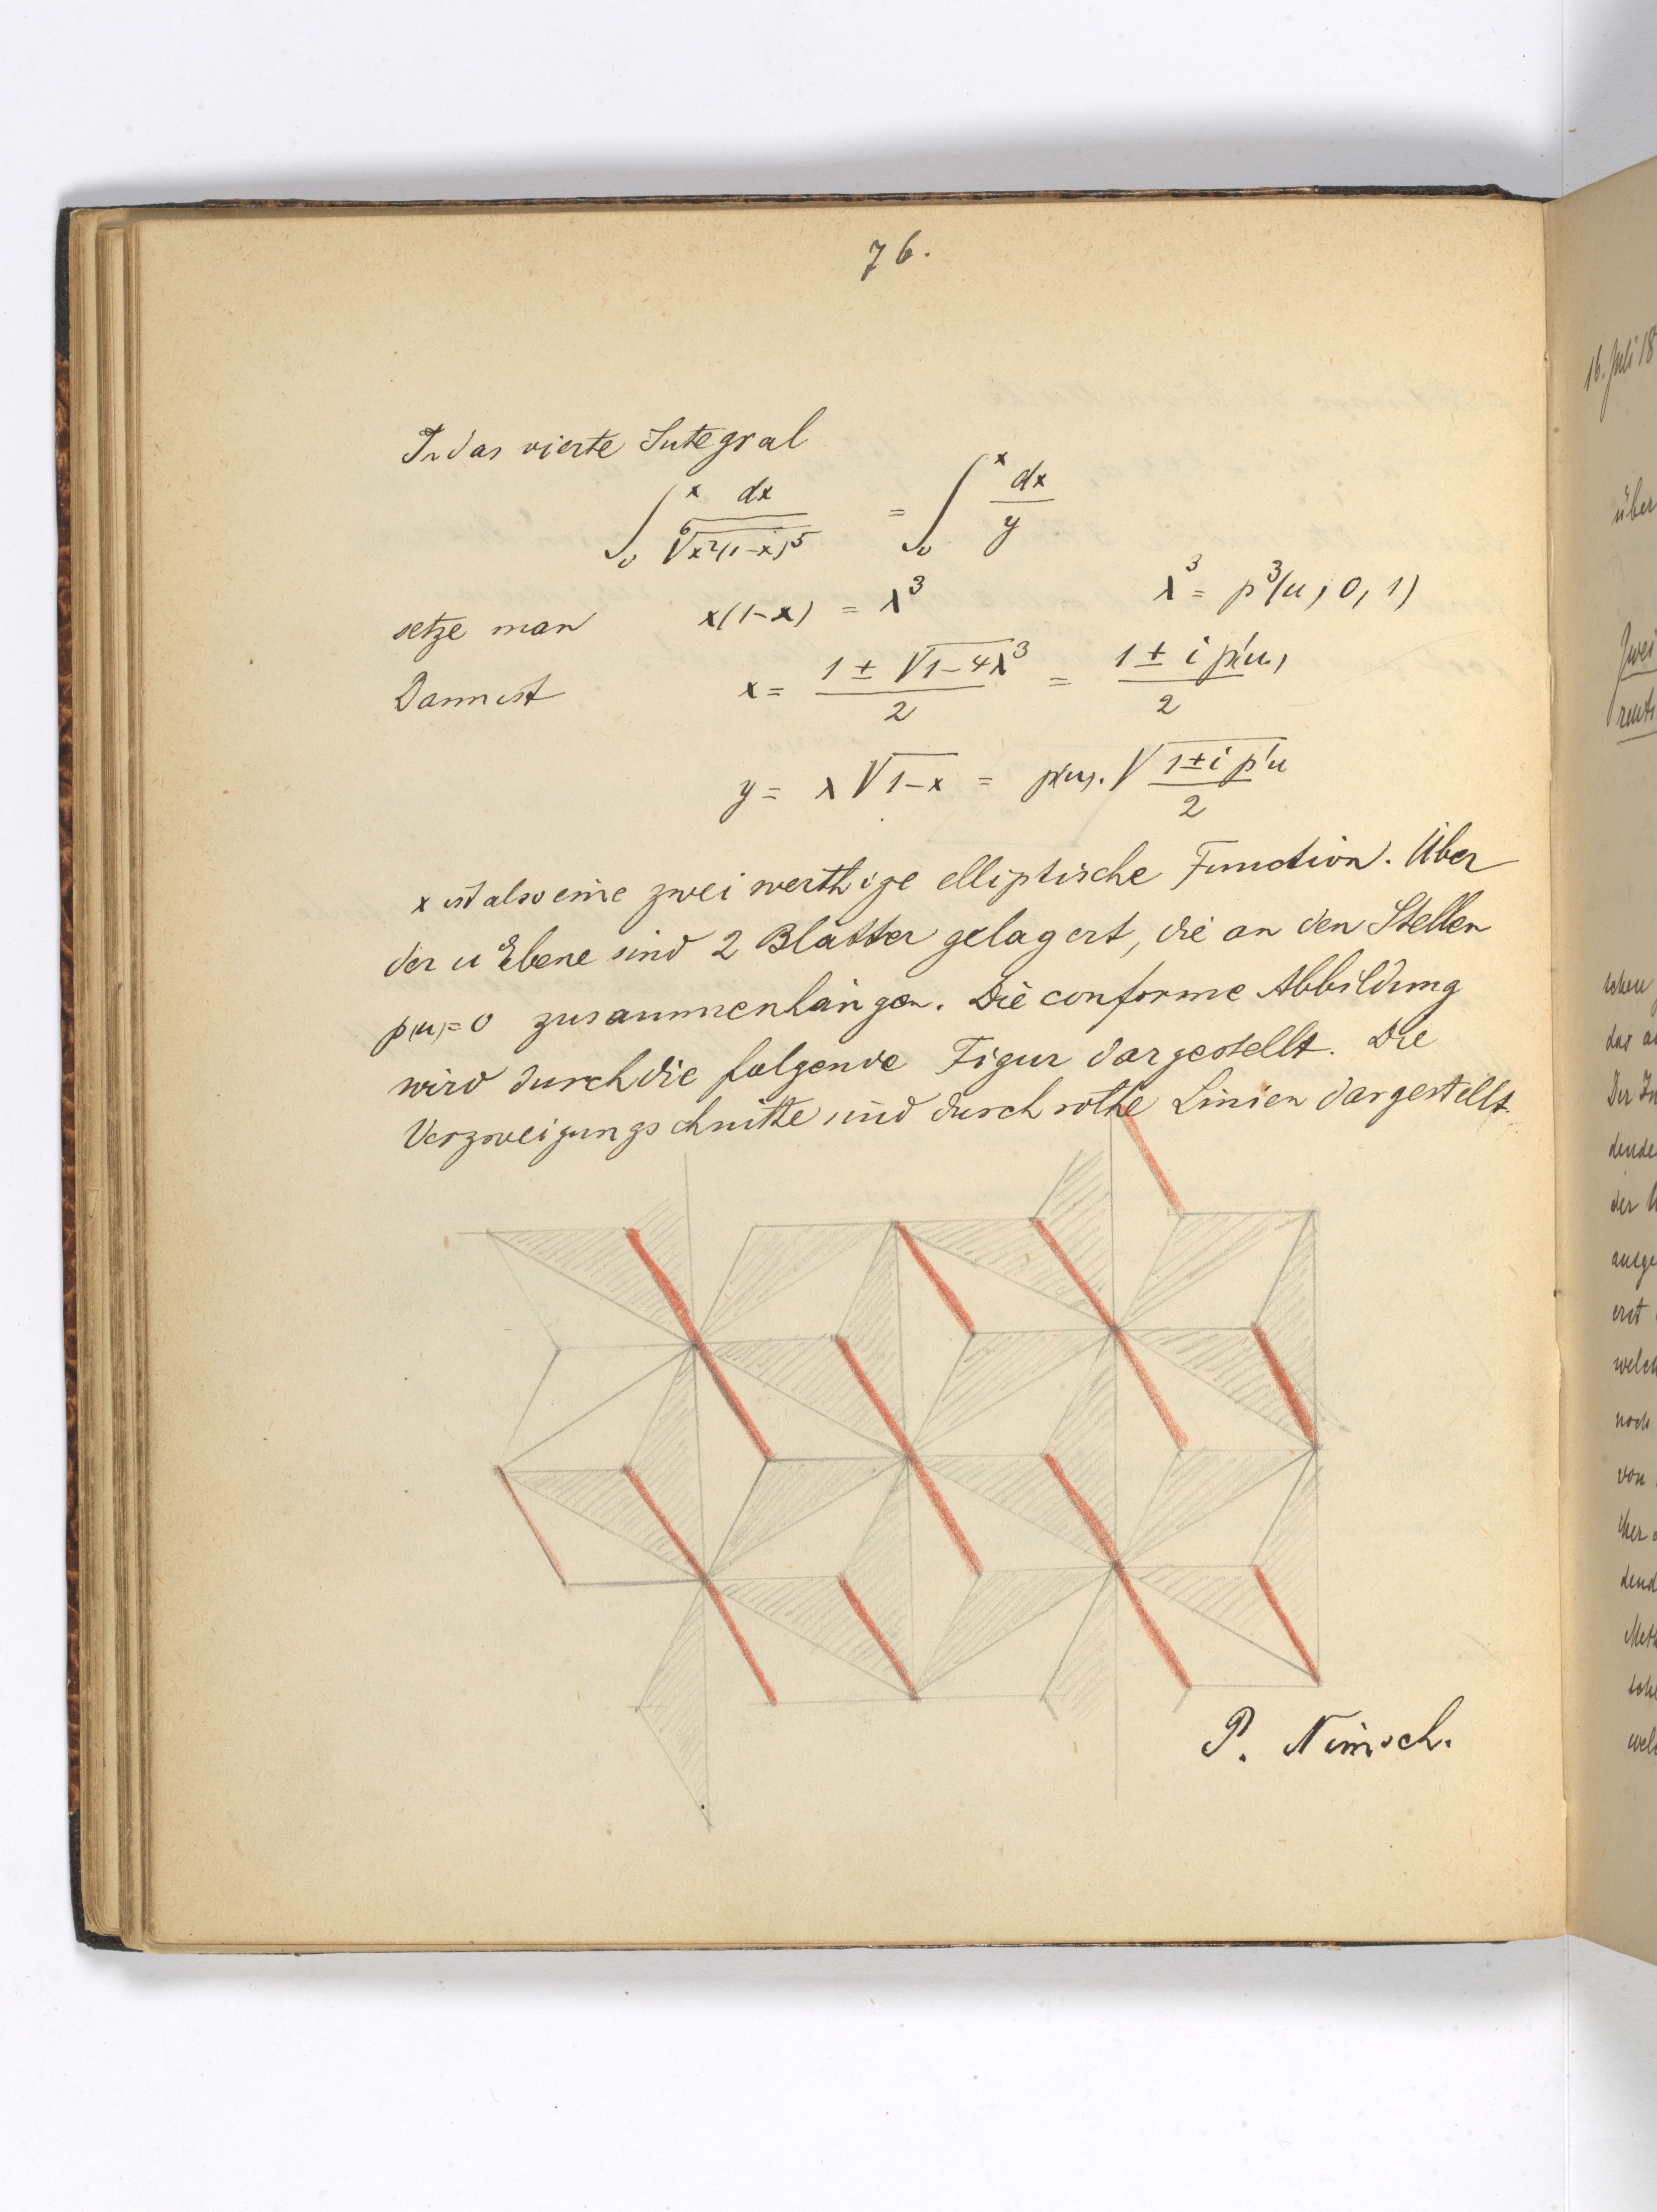 76.
In das vierte Integral
∫₀ˣ dx / ⁶√(x²(1-x)⁵) = ∫₀ˣ dx / y
setze man x(1-x) = λ³ λ³ = p³(u, 0, 1)
Dann ist x = (1 ± √(1-4λ³)) / 2 = (1 ± i p'(u)) / 2
y = λ √(1-x) = p(u). √((1 ± i p'u) / 2)
x ist also eine zweiwerthige elliptische Function. Über
der u Ebene sind 2 Blätter gelagert, die an den Stellen
p(u)=0 zusammenhängen. Die conforme Abbildung
wird durch die folgende Figur dargestellt. Die
Verzweigungschnitte sind durch rothe Linien dargestellt.
P. Nimsch.
16. Juli 18
über
Zwei
schen
das
Der In
dende
der
ausge
erst
welch
noch
von
dend
Meth